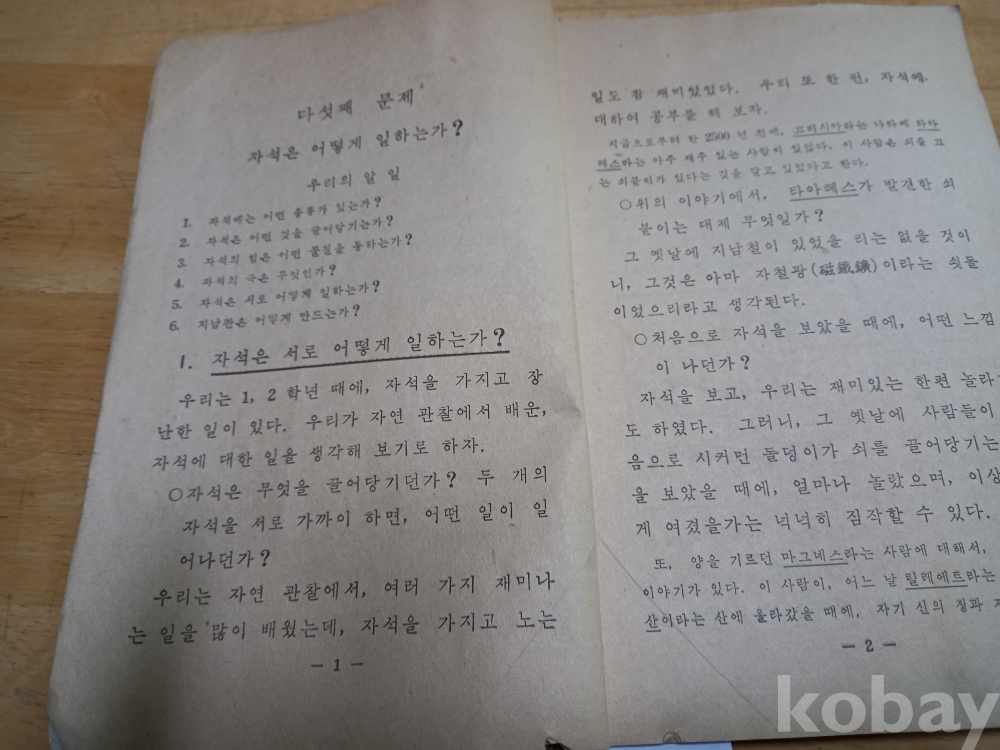 다섯째 문제
자석은 어떻게 일하는가?
우리의 알 일
1. 자석에는 어떤 종류가 있는가?
2. 자석은 어떤 것을 끌어당기는가?
3. 자석의 힘은 어떤 물질을 통하는가?
4. 자석의 극은 무엇인가?
5. 자석은 서로 어떻게 일하는가?
6. 지남판은 어떻게 만드는가?
1. 자석은 서로 어떻게 일하는가?
우리는 1, 2 학년 때에, 자석을 가지고 장
난한 일이 있다. 우리가 자연 관찰에서 배운,
자석에 대한 일을 생각해 보기로 하자.
○자석은 무엇을 끌어당기던가? 두 개의
자석을 서로 가까이 하면, 어떤 일이 일
어나던가?
우리는 자연 관찰에서, 여러 가지 재미나
는 일을 많이 배웠는데, 자석을 가지고 노는
— 1 —
일도 참 재미있었다. 우리 또 한 번, 자석에
대하여 공부를 해 보자.
지금으로부터 한 2500 년 전에, 그리시아라는 나라에 타아
레스라는 아주 재주 있는 사람이 있었다. 이 사람은 쇠를 끄
는 쇠붙이가 있다는 것을 알고 있었다고 한다.
○위의 이야기에서, 타아레스가 발견한 쇠
붙이는 대체 무엇일가?
그 옛날에 지남철이 있었을 리는 없을 것이
니, 그것은 아마 자철광(磁鐵鑛)이라는 쇳돌
이었으리라고 생각된다.
○처음으로 자석을 보았을 때에, 어떤 느낌
이 나던가?
자석을 보고, 우리는 재미있는 한편 놀라
도 하였다. 그러니, 그 옛날에 사람들이
음으로 시커먼 돌덩이가 쇠를 끌어당기는
을 보았을 때에, 얼마나 놀랐으며, 이상
게 여겼을가는 넉넉히 짐작할 수 있다.
또, 양을 기르던 마그네스라는 사람에 대해서,
이야기가 있다. 이 사람이, 어느 날 릴레에트라는
산이라는 산에 올라갔을 때에, 자기 신의 징과
— 2 —
kobay